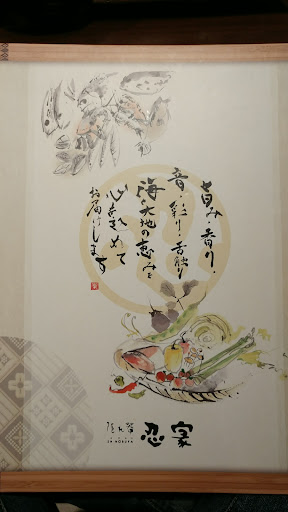 旨み・香り・
音・彩り・舌触り
海と大地の恵みを
心をこめて
お届けします
隠れ菴
忍家
SHINOBUYA